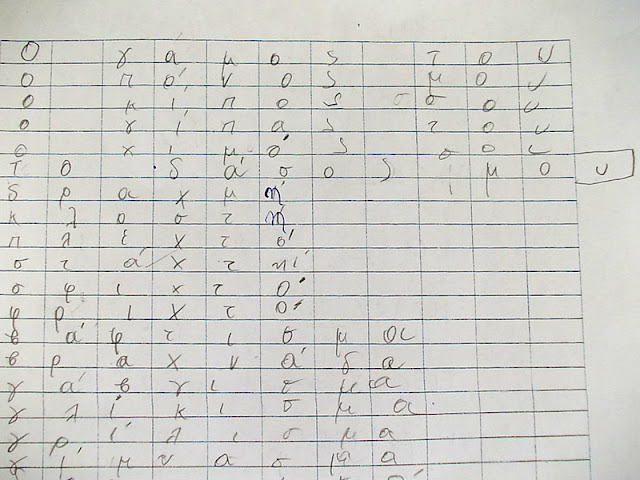 Ο γάμος του
ο πόνος μου
ο κίπος σου
ο γίπας του
ο χιμός σου
το δάσος μου
δραχμή
κλοστή
πλεχτό
στάχτη
σφιχτό
φριχτό
βάφτισμα
βραχνάδα
γάβγισμα
γλίκισμα
γρίλισμα
γίμνασμα